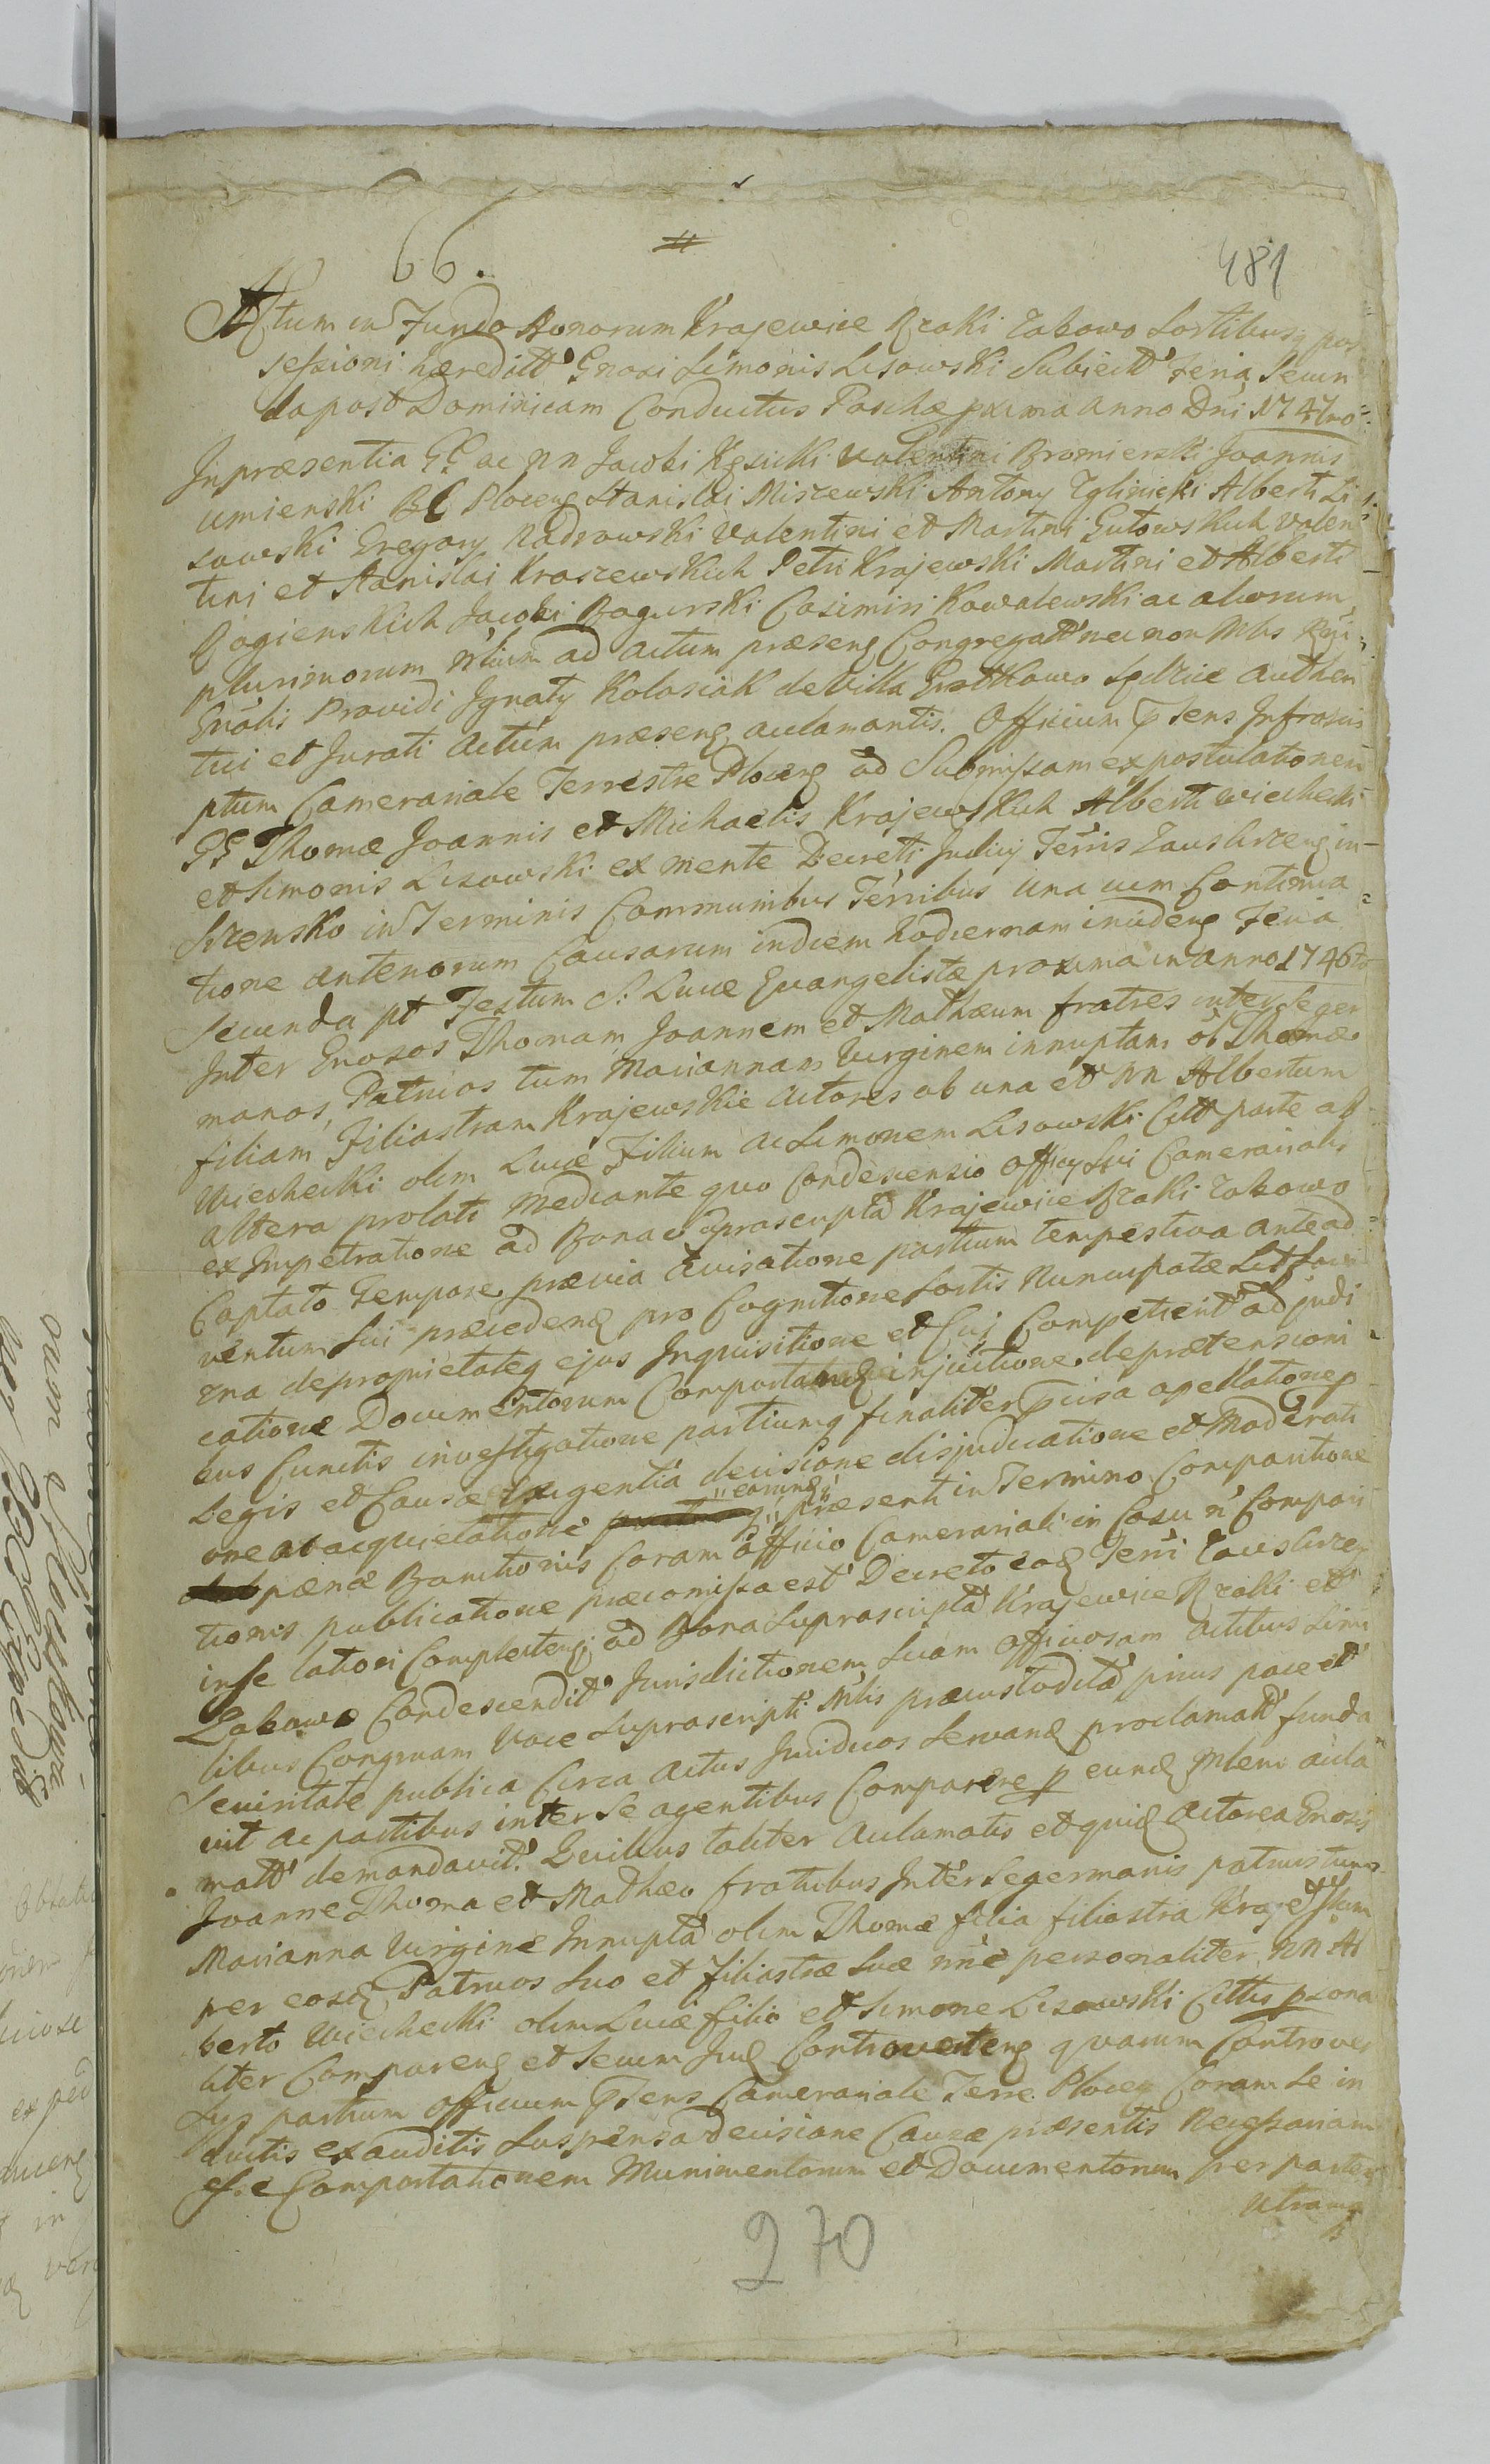 66.
481
Actum in Fundo Bonorum Krajewice Rzaki Łabowo Sortibusq pos
sessioni hæreditt' Gnosi Simonis Lisowski Subiectt' Feria Secun
da post Dominicam Conductus Paschæ pxima Anno Dni 1747mo
In præsentia GG ac NN Jacobi Kęsicki Valentini Bromierski Joannis
umienski BC Plocens Stanislai Miszewski Antony Zglinicki Alberti Li
sowski Gregory Nadrowski Valentini et Martini Gutowskich Valen
tini et Stanislai Kraszewskich Petri Krajewski Martini et Alberti
Rogienskich Jacobi Bogurski Casimiri Kowalewski ac aliorum
plurimorum Nblium ad actum præsens Congregatt' nec non Mlis Rgi
Gnalis Providi Ignaty Kolasiak de Villa Gnatkowo Sędzice authen
tici et Jurati actum præsens aclamantis. Officium Psens Infrascri
ptum Camerariale Terrestre Plocens ad Submissam expostulationem
GG Thomæ Joannis et Michaelis Krajewskich Alberti Wiechecki
et Simonis Lisowski ex mente Decreti Judicij Terris Zauskrzens in
Szrensko in Terminis Communibus Terribus una cum Continua
tione anteriorum Causarum in diem hodiernam inciden Feria
Secunda pt Festum S: Lucæ Evangelistæ proxima in anno 1746to
Inter Gnosos Thomam Joannem et Mathæum fratres inter se ger
manos, Patruos tum Mariannam Virginem innuptam ol Thomæ
filiam Filiastram Krajewskie Actores ab una et NN Albertum
Wiechecki olim Lucæ Filium ac Simonem Lisowski Citt parte ab
altera prolati mediante quo Condescensio Officij Sui Camerarialis
ex Impetratione ad Bona Suprascripta Krajewice Rzaki Łabowo
Captato Tempore prævia Avisatione partium tempestiva ante ad
ventum Sui præceden pro Cognitione Sortis Nuncupatæ
zna deproprietateq ejus Inquisitione et Cuj Competierit ad judi
catione Documentorum Comportan injuictione deprætensioni
bus Cunctis investigatione partiumq finaliter Præcisa apellatione
Legis et Causæ Exigentia decisione disjudicatione et Moderati
one ab acquietatione earund præsenti in Termino Comparitione
pænæ Banitionis Coram Officio Camerariali in Casu n' Compari
tionis publicatione præcomissa est Decreto eod Terri Zauskrzen
in se latiori Complecten ad Bona Suprascripta Krajewice Rzaki et
Łabowo Condescendit Jurisdictionem Suam Officiosam actibus Simi
libus Congruam Voce Suprascripti Mlis præcustodita prius pace et
Securitate publica Circa actus Juridicos Servand proclamatt' funda
vit ac partibus inter Se agentibus Comparere p eund Mlem acla
matt' demandavit. Quibus taliter aclamatis et quid Actorea Gnosis
Joanne Thoma et Mathæo fratribus Inter Se germanis patruis tum
Marianna Virgine Innupta olim Thomæ filia filiastra Krajewskiem
per eosd Patruos Suo et filiastræ Suæ nne personaliter NN Al
berto Wiechecki olim Lucæ filio et Simone Lisowski Cittis psona
liter Comparen et Secum Jud Controverten quarum Controver
sys partium Officium Psens Camerariale Terre Plocen Coram Se in
ductis exauditis Suspensa decisione Causæ præsentis Necessariam
esse Comportationem Munimentorum et Documentorum per partem
utramq
270